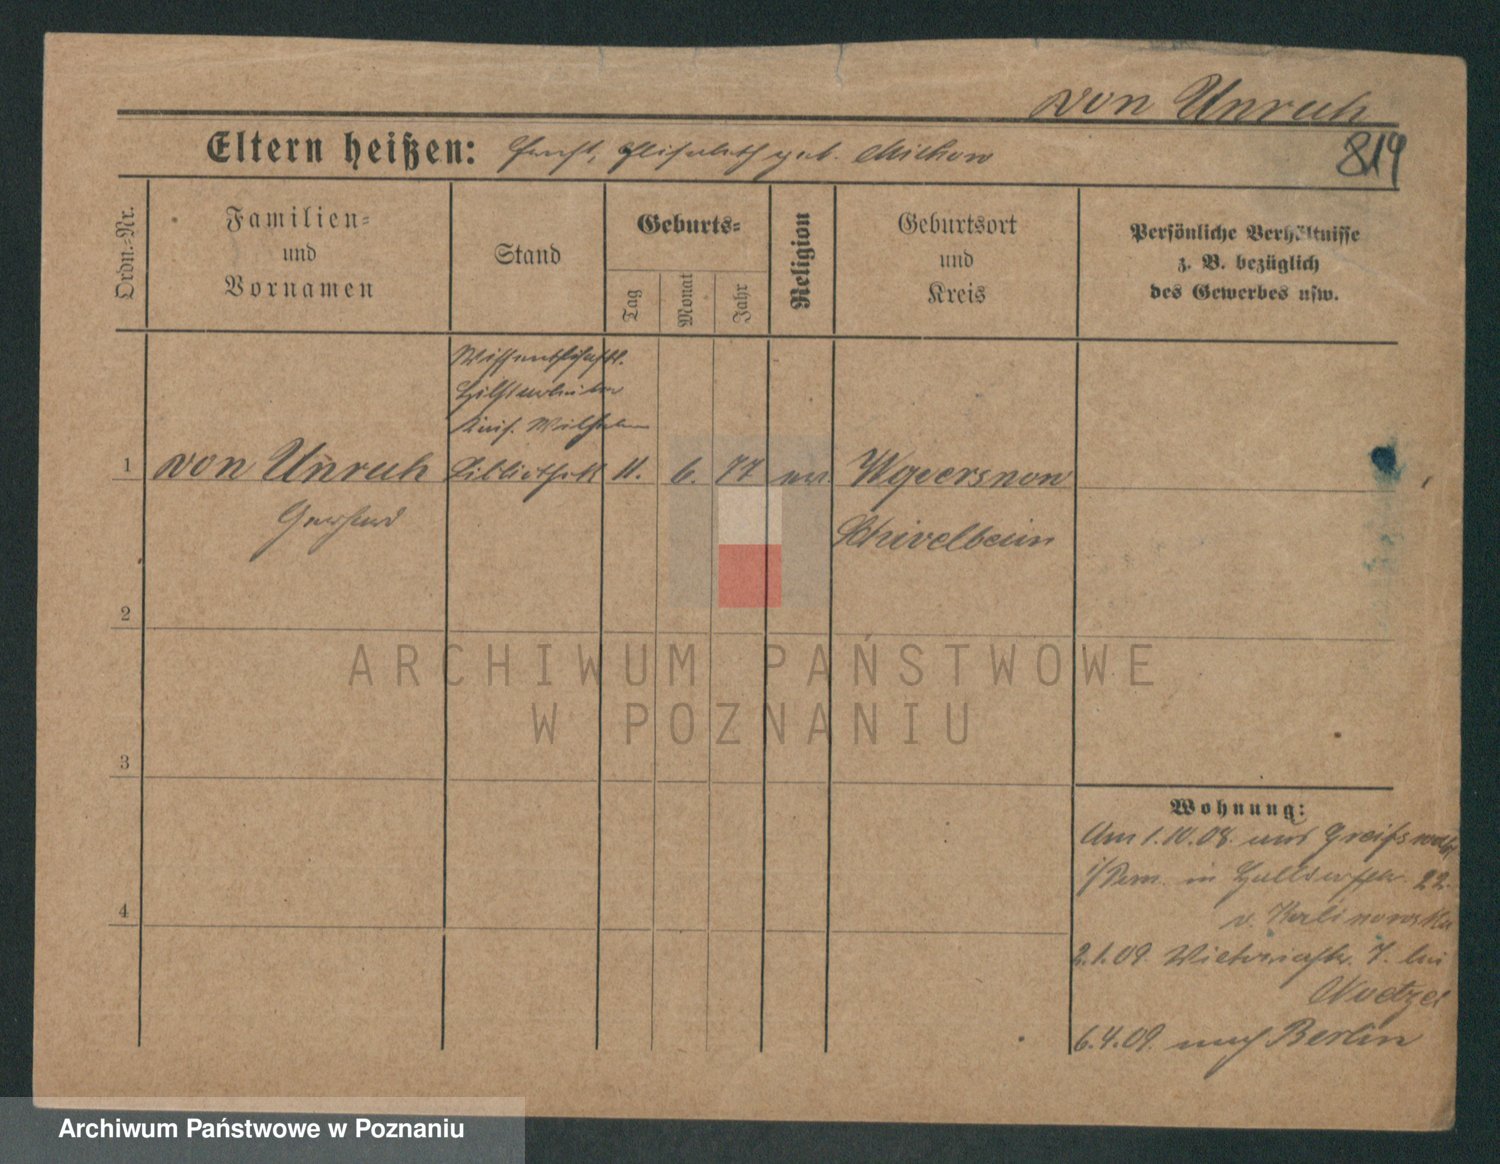 von Unruh
819
Eltern heißen: Ernst, Elisabeth geb. Milkow
Ordn.-Nr.
Familien-
und
Vornamen
Stand
Geburts-
Tag
Monat
Jahr
Religion
Geburtsort
und
Kreis
Persönliche Verhältnisse
z. B. bezüglich
des Gewerbes usw.
Wissenschaftl.
Hilfsarbeiter
Kais. Wilhelm
1 von Unruh Bibliothek 11. 6. 77 ev.
Gerhard
Schivelbein
2
3
4
Wohnung:
Am 1.10.08. aus Greifswald
i/Pom. in 22.
v.
2.1.09. Victoriastr. 7. bei
6.4.09. nach Berlin
ARCHIWUM PAŃSTWOWE
W POZNANIU
Archiwum Państwowe w Poznaniu